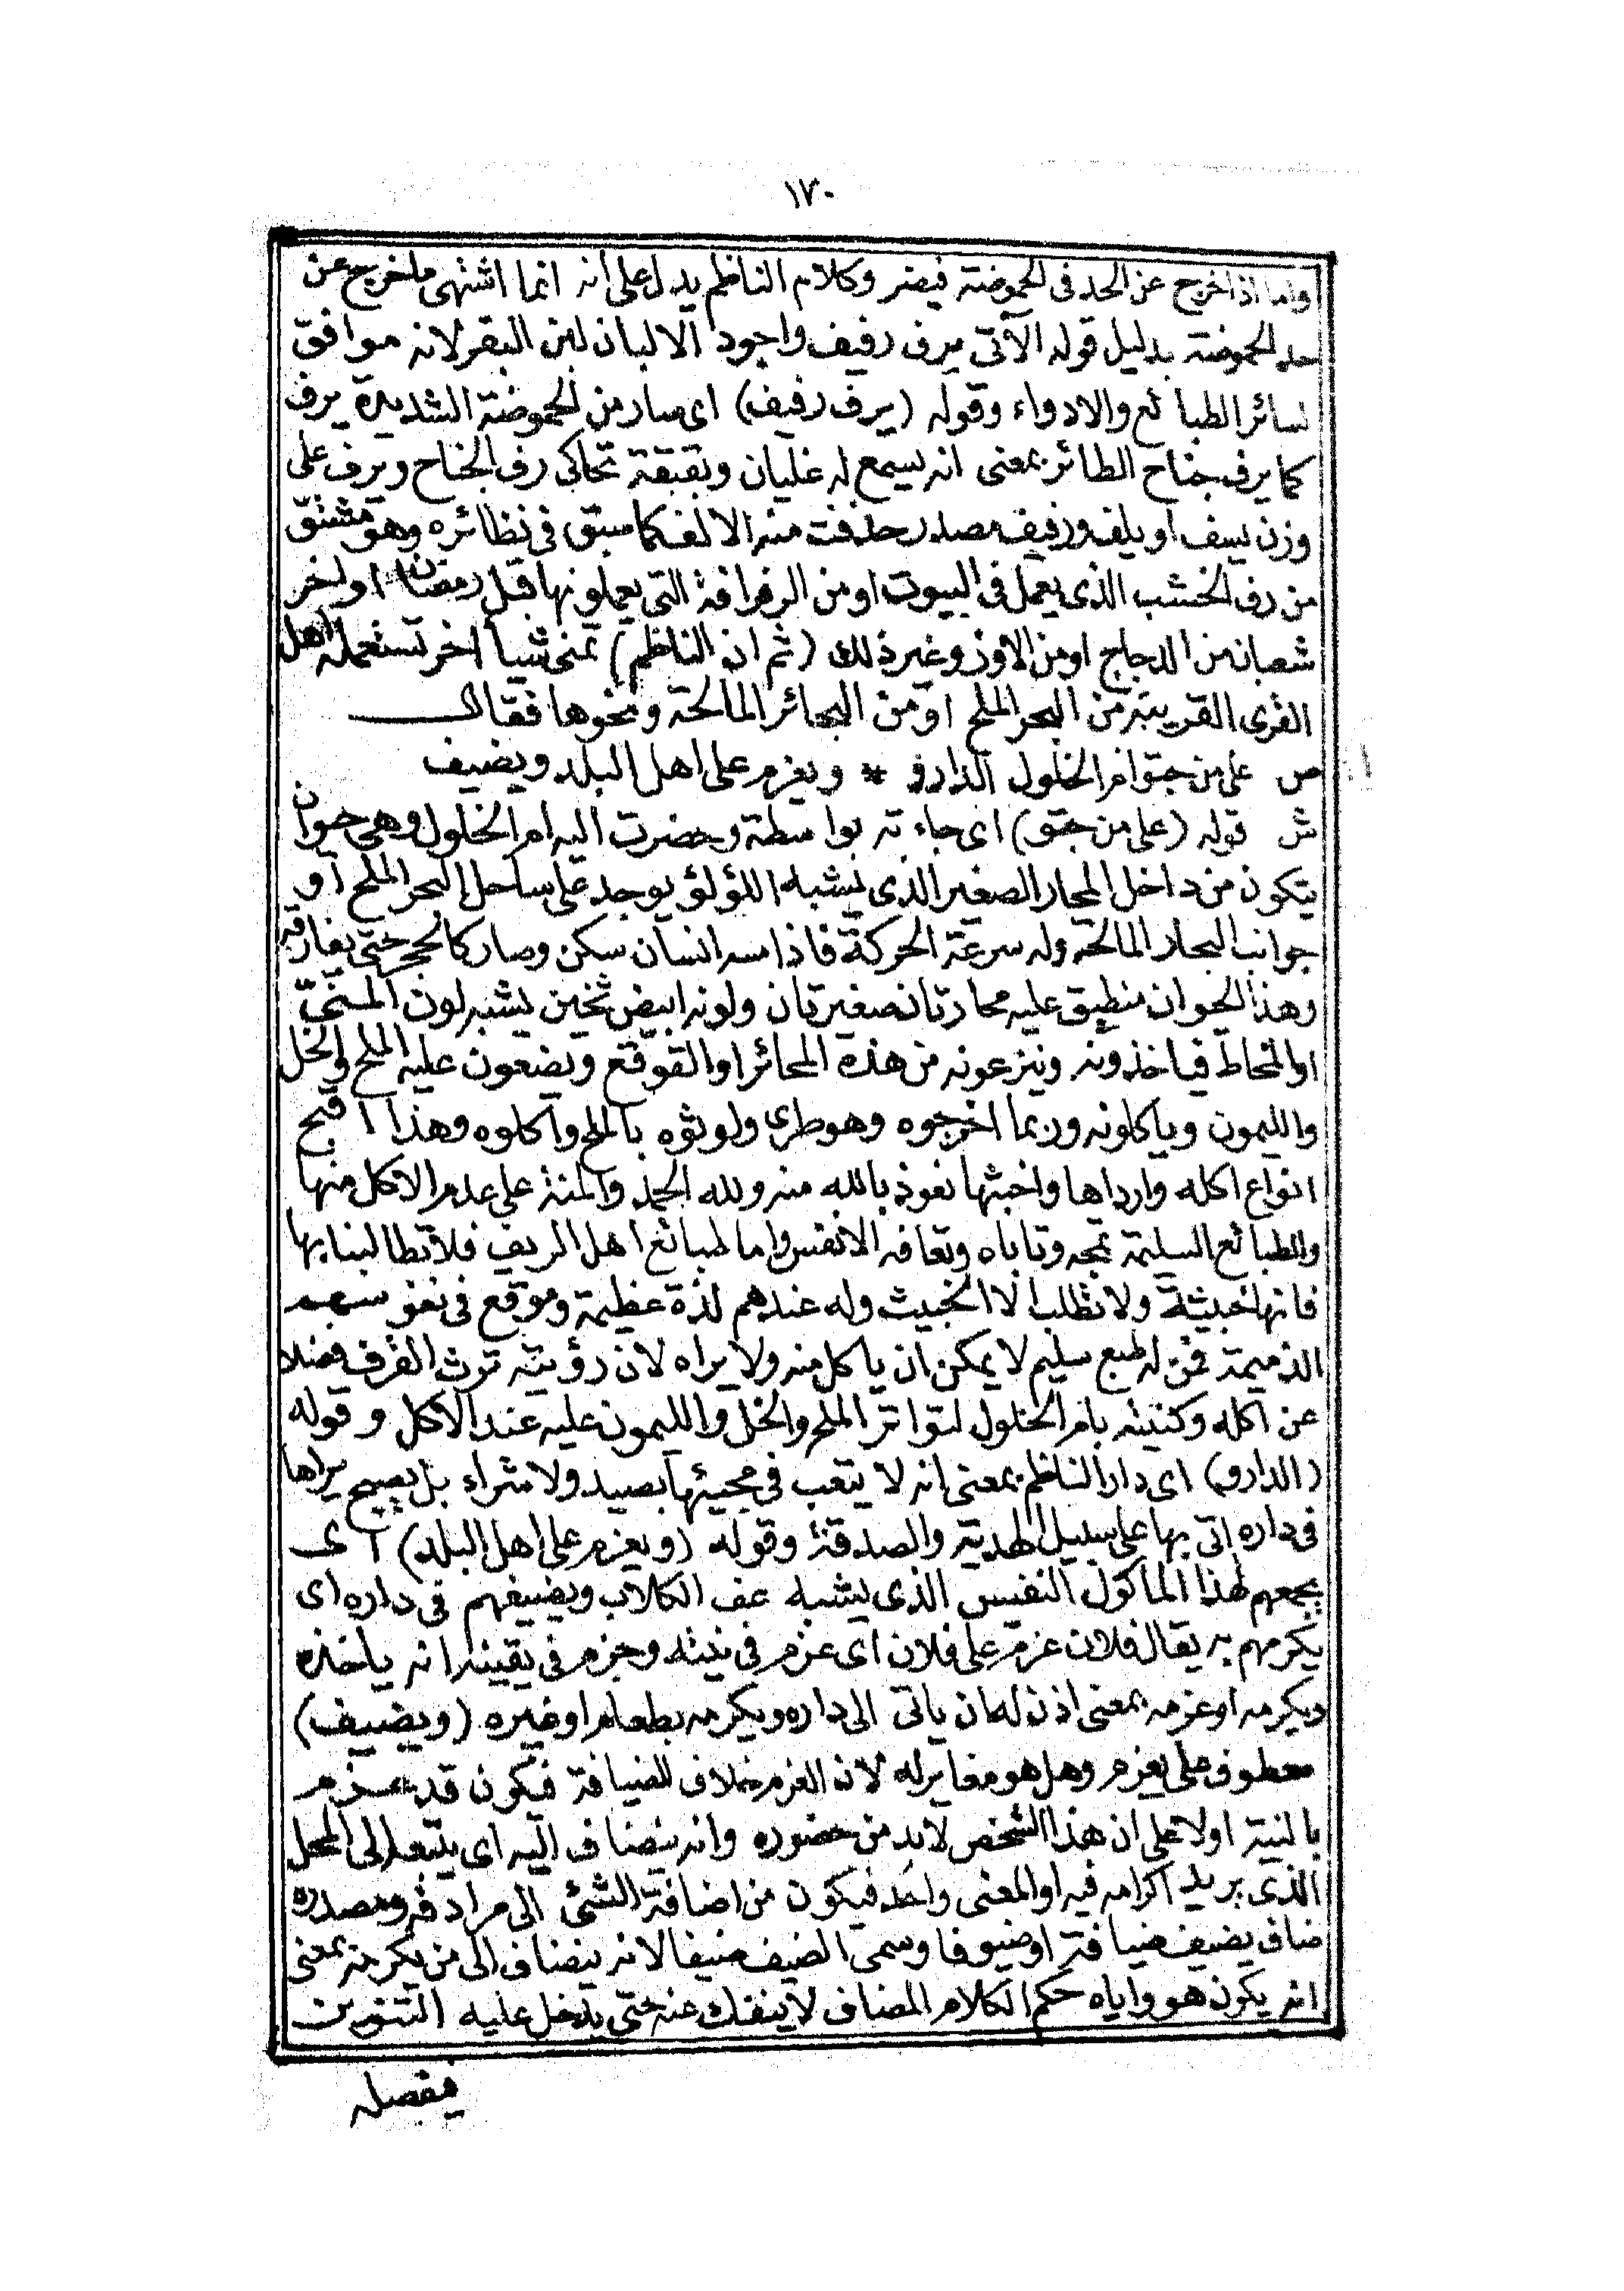 ١٧٠
واما اذا خرج عن الحد فى الحموضة فيضر وكلام الناظم يدل على انه انما اشتهى ما خرج عن
حد الحموضة بدليل قوله الآتى يرف رفيف واجود الالبان لبن البقر لانه موافق
لسائر الطبائع والادواء وقوله (يرف رفيف) اى صار من الحموضة الشديدة يرف
كما يرف جناح الطائر بمعنى انه يسمع له غليان وبقبقة تحاكى رف الجناح ويرف على
وزن يسف او يلف ورفيف مصدر حذفت منه الالف كما سبق فى نظائره وهو مشتق
من رف الخشب الذى يعمل فى البيوت او من الرفرافة التى يعملونها قبل رمضان اواخر
شعبان من الدجاج او من الاوز وغير ذلك (ثم ان الناظم) تمنى شيأ اخر تستعمله اهل
القرى القريبة من البحر الملح او من البحائر المالحة ونحوها فقال
ص على من جتو ام الخلول الدارو * ويعزم على اهل البلد ويضيف
ش قوله (على من جتو) اى جاءته بواسطة وحضرت اليه ام الخلول وهى حيوان
يتكون من داخل المحار الصغير الذى يشبه اللؤلؤ يوجد على ساحل البحر الملح او
جوانب البحار المالحة وله سرعة الحركة فاذا مسه انسان سكن وصار كالحجر حتى يفارقه
وهذا الحيوان منطبق عليه محارتان صغيرتان ولونه ابيض ثخين يشبه لون المنىّ
او المخاط فياخذونه وينزعونه من هذه المحائر او القوقع ويضعون عليه الملح والخل
والليمون وياكلونه وربما اخرجوه وهو طرى ولوثوه بالملح واكلوه وهذا اقبح
انواع اكله وارداها واخبثها نعوذ بالله منه ولله الحمد والمنة على عدم الاكل منها
والطبائع السليمة تمجه وتاباه وتعافه الانفس واما طبائع اهل الريف فلا تطالبنا بها
فانها خبيثة ولا تطلب الا الخبيث وله عندهم لذة عظيمة وموقع فى نفوسهم
الذميمة فمن له طبع سليم لا يمكن ان ياكل منه ولا يراه لان رؤيته تورث القرف فضلا
عن اكله وكنيته بام الخلول لتواتر الملح والخل والليمون عليه عند الاكل وقوله
(الدارو) اى دار الناظم بمعنى انه لا يتعب فى مجيئها بصيد ولا شراء بل يصبح يراها
فى داره اتى بها على سبيل الهدية والصدقة وقوله (ويعزم على اهل البلد) اى
يجمعهم لهذا الماكول النفيس الذى يشبه عف الكلاب ويضيفهم فى داره اى
يكرمهم به يقال فلان عزم على فلان اى عزم فى نيته وجزم فى يقينه انه ياخذه
ويكرمه او عزمه بمعنى اذن له ان ياتى الى داره ويكرمه بطعام او غيره (ويضيف)
معطوف على يعزم وهل هو مغاير له لان العزم خلاف للضيافة فيكون قد عزم
بالنية اولا على ان هذا الشخص لابد من حضوره وانه ينضاف اليه اى يتبعه الى المحل
الذى يريد اكرامه فيه او المعنى واحد فيكون من اضافة الشئ الى مرادفه ومصدره
ضاف يضيف ضيافة او ضيوفا وسمى الضيف ضيفا لانه ينضاف الى من يكرمه بمعنى
انه يكون هو واياه حكم الكلام المضاف لا ينفك عنه حتى يدخل عليه التنوين
فيفصله